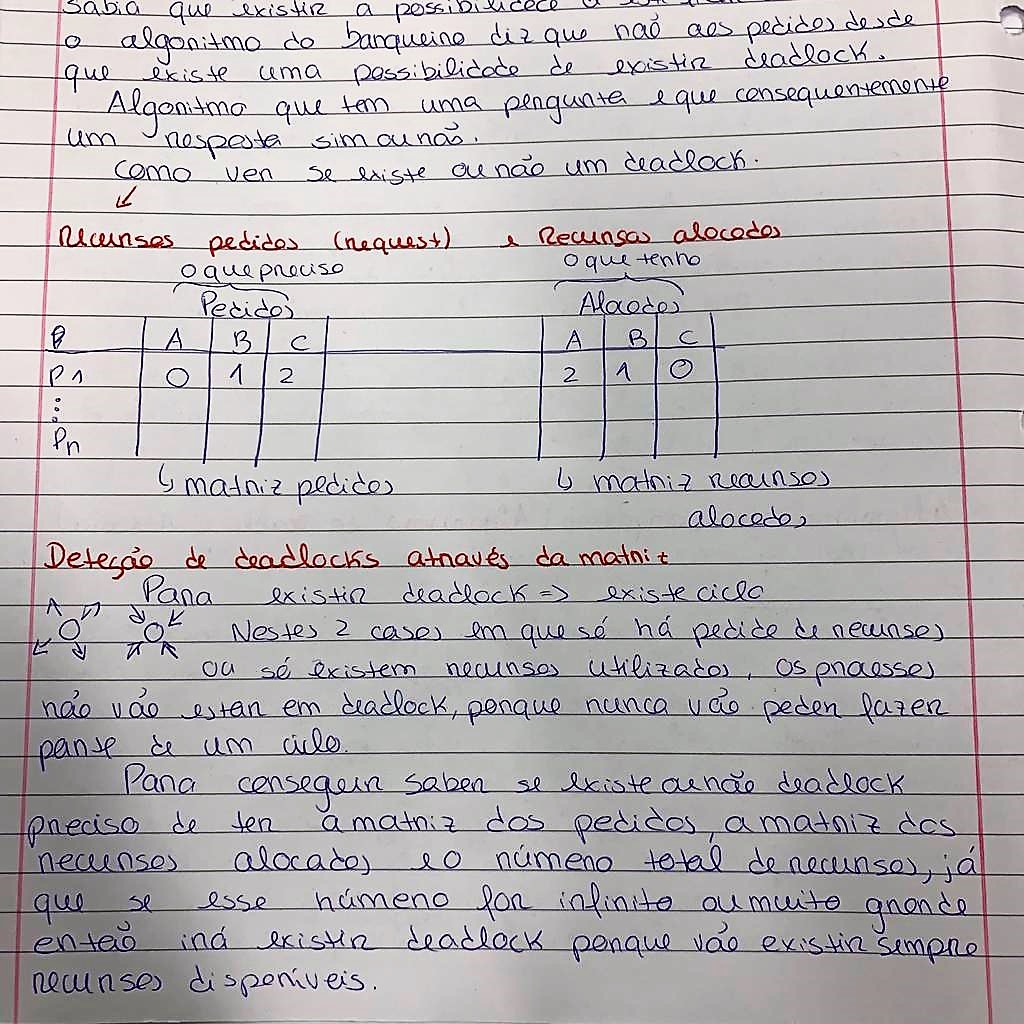 sabia que existir a possibilidade
o algoritmo do banqueiro diz que não aos pedidos desde
que existe uma possibilidade de existir deadlock.
Algoritmo que tem uma pergunta e que consequentemente
um resposta sim ou não.
como ver se existe ou não um deadlock.
Recursos pedidos (request) e Recursos alocados
o que preciso o que tenho
Pedidos Alocados
A B C A B C
P1 0 1 2 2 1 0
Pn
↳ matriz pedidos ↳ matriz recursos
alocados
Deteção de deadlocks através da matriz
Para existir deadlock => existe ciclo
Nestes 2 casos em que só há pedido de recursos
ou só existem recursos utilizados, os processos
não vão estar em deadlock, porque nunca vão poder fazer
parte de um ciclo.
Para conseguir saber se existe ou não deadlock
preciso de ter a matriz dos pedidos, a matriz dos
recursos alocados e o número total de recursos, já
que se esse número for infinito ou muito grande
então irá existir deadlock porque vão existir sempre
recursos disponíveis.